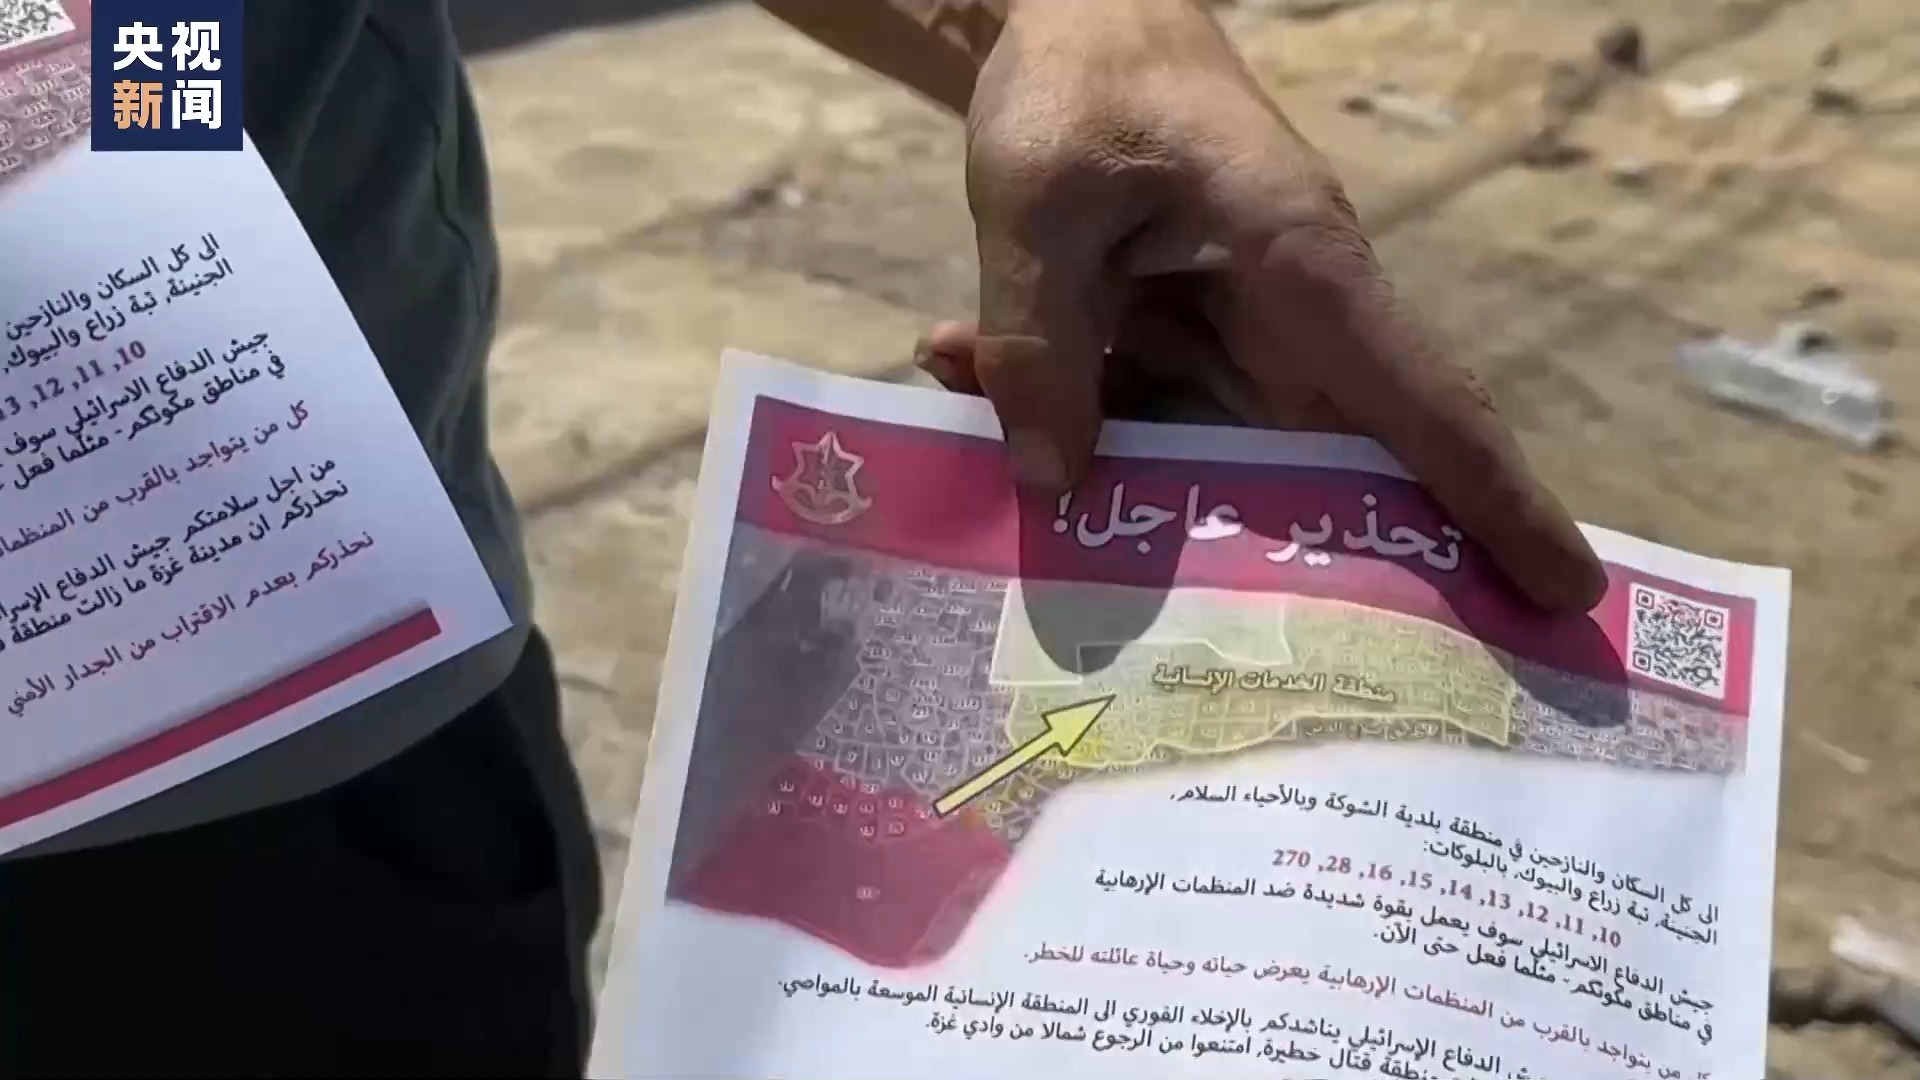 央视
新闻
الى كل السكان والنازحين
الجنينة, تبة زراع والبيوك,
10, 11, 12, 13
جيش الدفاع الاسرائيلي سوف
في مناطق مكوثكم- مثلما فعل
كل من يتواجد بالقرب من المنظمات
من اجل سلامتكم جيش الدفاع الإسرا
نحذركم ان مدينة غزة ما زالت منطقة
نحذركم بعدم الاقتراب من الجدار الأمني
تحذير عاجل!
منطقة الخدمات الإنسانية
الى كل السكان والنازحين في منطقة بلدية الشوكة وبالأحياء السلام,
الجنينة, تبة زراع والبيوك, بالبلوكات:
10, 11, 12, 13, 14, 15, 16, 28, 270
جيش الدفاع الاسرائيلي سوف يعمل بقوة شديدة ضد المنظمات الإرهابية
في مناطق مكوثكم- مثلما فعل حتى الآن.
كل من يتواجد بالقرب من المنظمات الإرهابية يعرض حياته وحياة عائلته للخطر.
الدفاع الإسرائيلي يناشدكم بالإخلاء الفوري الى المنطقة الإنسانية الموسعة بالمواصي.
منطقة قتال خطيرة, امتنعوا من الرجوع شمالا من وادي غزة.